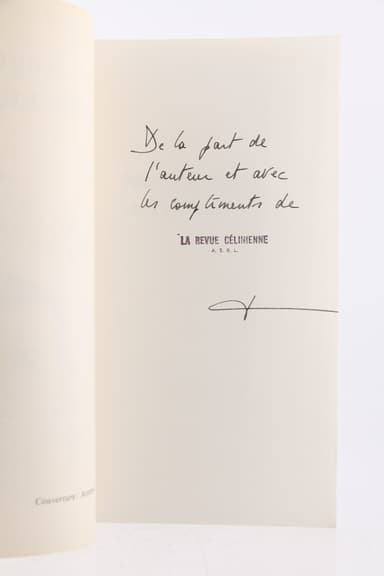 De la part de
l'auteur et avec
les compliments de
LA REVUE CÉLINIENNE
A. S. B. L.
Couverture: